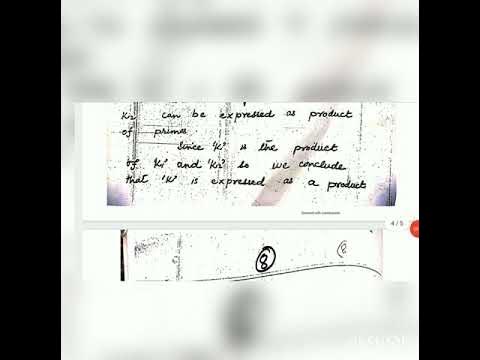 K2 can be expressed as product
of primes
Since 'K' is the product
of 'K1' and 'K2' so we conclude
that 'K' is expressed as a product
Scanned with CamScanner
4/5
8